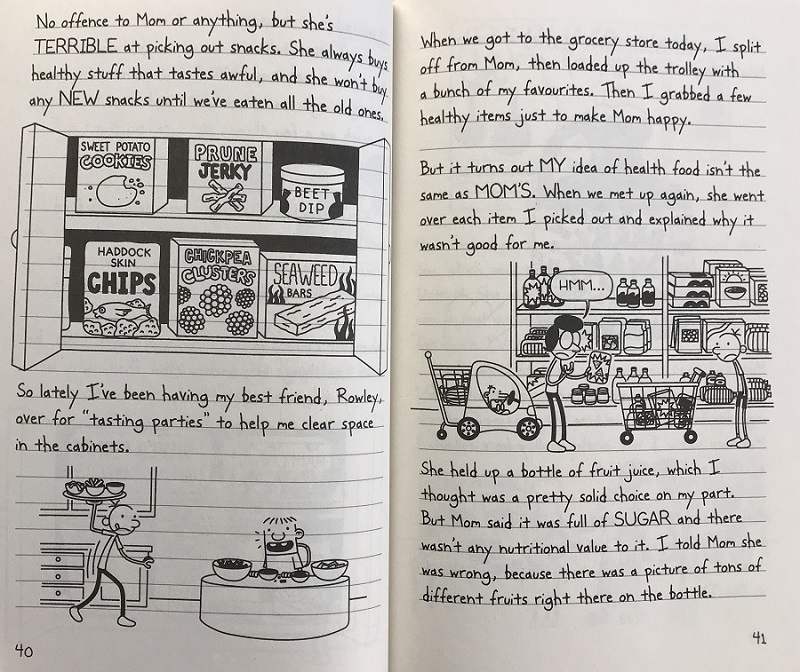 No offence to Mom or anything, but she's
TERRIBLE at picking out snacks. She always buys
healthy stuff that tastes awful, and she won't buy
any NEW snacks until we've eaten all the old ones.
SWEET POTATO
COOKIES
PRUNE
JERKY
BEET
DIP
HADDOCK
SKIN
CHIPS
CHICKPEA
CLUSTERS
SEAWEED
BARS
So lately I've been having my best friend, Rowley,
over for "tasting parties" to help me clear space
in the cabinets.
40
When we got to the grocery store today, I split
off from Mom, then loaded up the trolley with
a bunch of my favourites. Then I grabbed a few
healthy items just to make Mom happy.
But it turns out MY idea of health food isn't the
same as MOM'S. When we met up again, she went
over each item I picked out and explained why it
wasn't good for me.
HMM...
She held up a bottle of fruit juice, which I
thought was a pretty solid choice on my part.
But Mom said it was full of SUGAR and there
wasn't any nutritional value to it. I told Mom she
was wrong, because there was a picture of tons of
different fruits right there on the bottle.
41